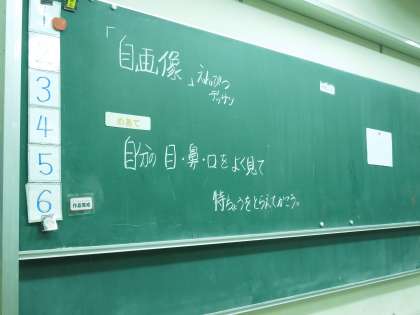 「自画像」えんぴつ
デッサン
めあて
自分の 目・鼻・口をよく見て
特ちょうをとらえてかこう。
1
3
4
5
6
作品完成